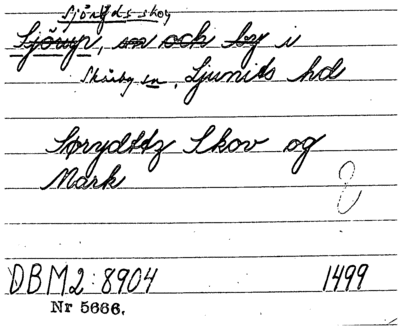 Sjöryds skog
Sjörup, sn och by i
Skårby sn, Ljunits hd
Sørydttz Skov og
Mark
DBM2:8904 1499
Nr 5666.